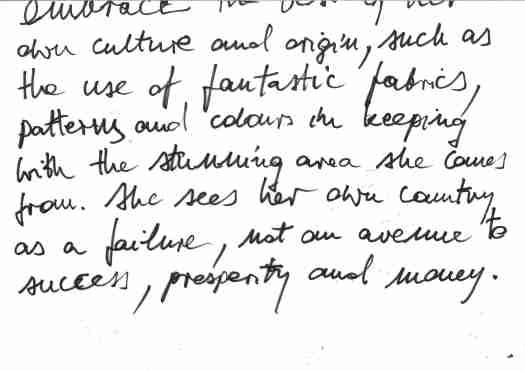 embrace the best of her
own culture and origin, such as
the use of fantastic fabrics,
patterns and colours in keeping
with the stunning area she comes
from. She sees her own country
as a failure, not an avenue to
success, prosperity and money.